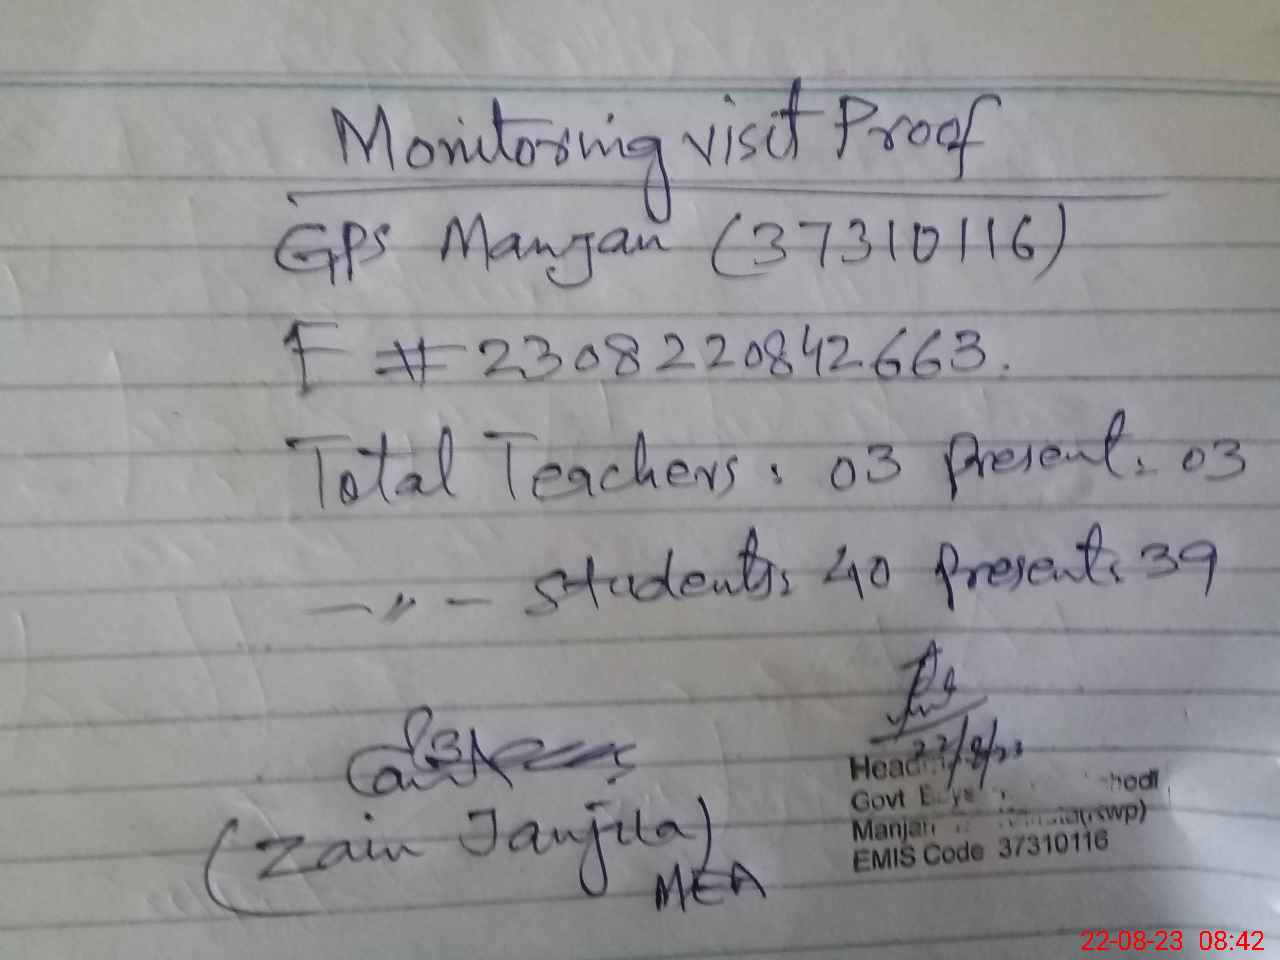 Monitoring visit Proof
GPS Manjan (37310116)
F # 2308220842663.
Total Teachers: 03 Present: 03
—〃— Students: 40 Present: 39
22/8/23
Govt
Manjan (rwp)
EMIS Code 37310116
(Zain Tanjila)
MEA
22-08-23 08:42